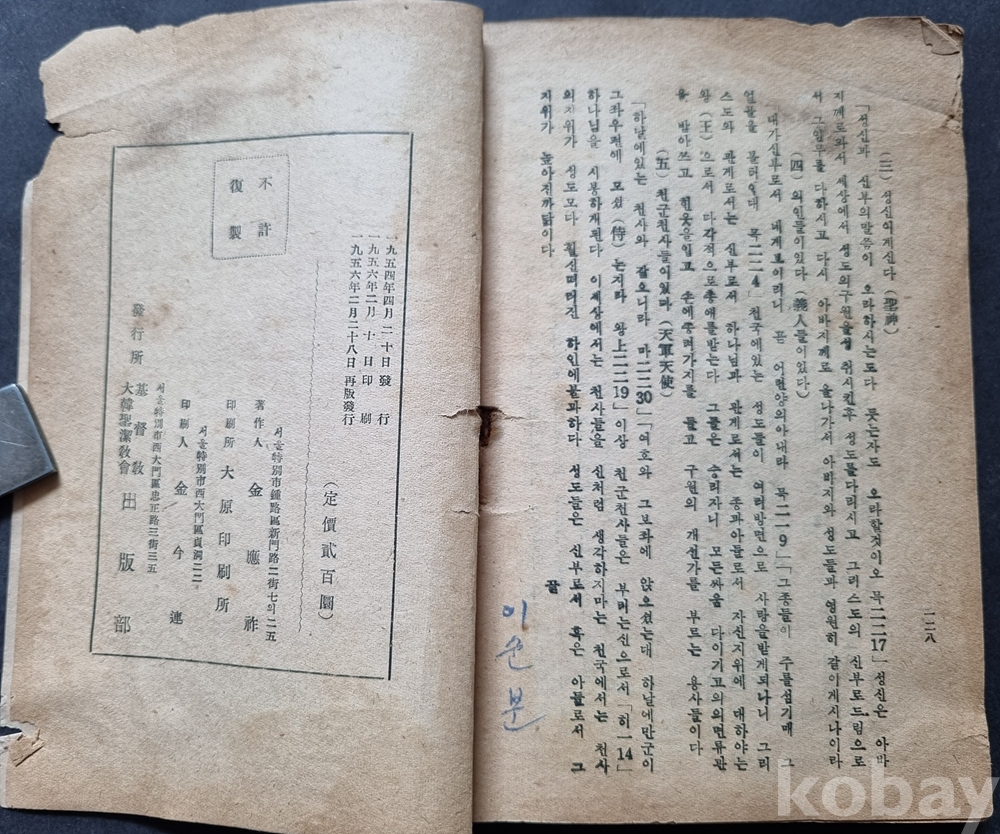 一二八
(三) 성신이게신다 (聖神)
「성신과 신부의말씀이 오라하시는도다 듯는자도 오라할것이오 묵二二17」 성신은 아바
지께로와서 세상에서 성도의구원을성취시킨후 성도를다리시고 그리스도의 신부로드림으로
서 그임무를 다하시고 다시 아바지께로 올나가서 아바지와 성도들과 영원히 같이게시나이라
(四) 의인들이있다 (義人들이있다)
「내가신부로서 네게보이리니 곧 어린양의아내라 묵二一9」 「그종들이 주를섬기매 그
얼골을 볼러이대 묵二二4」 천국에있는 성도들이 여러방면으로 사랑을받게되나니 그리
스도와 관게로서는 신부로서 하나님과 관게로서는 종과아들로서 자신지위에 대하야는
왕 (王) 으로서 다각적으로총애를받는다 그들은 승리자니 모든싸움 다이기고의의면류관
을 받아쓰고 흰옷을입고 손에종려가지를 들고 구원의 개선가를 부르는 용사들이다
(五) 천군천사들이있다 (天軍天使)
「하날에있는 천사와 갈으니라 마二二30」 「여호와 그보좌에 앉으셨는대 하날에만군이
그좌우편에 모셨 (侍) 는지라 왕上二二19」 이상 천군천사들은 부리는신으로서 「히一14」
하나님을 시봉하개된다 이세상에서는 천사들을 신처럼 생각하지마는 천국에서는 천사
의지위가 성도보다 훨신떠러진 하인에불과하다 성도들은 신부로서 혹은 아들로서 그
지위가 높아진까닭이다
끝
이순분
不許
復製
一九五四年四月二十日發行
一九五六年二月十日印刷
一九五六年二月二十八日再版發行
(定價貳百圜)
서울特別市鍾路區新門路二街七의二五
著作人 金應祚
印刷所 大原印刷所
서울特別市西大門區貞洞二二
印刷人 金今連
서울特別市西大門區忠正路三街三五
發行所 基督敎大韓聖潔敎會出版部
kobay